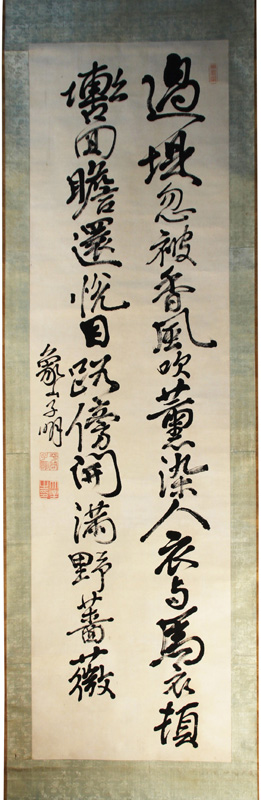 過堤忽被香風吹薫染人衣与馬衣頓
回瞻還悦目路傍開満野薔薇
象山子明